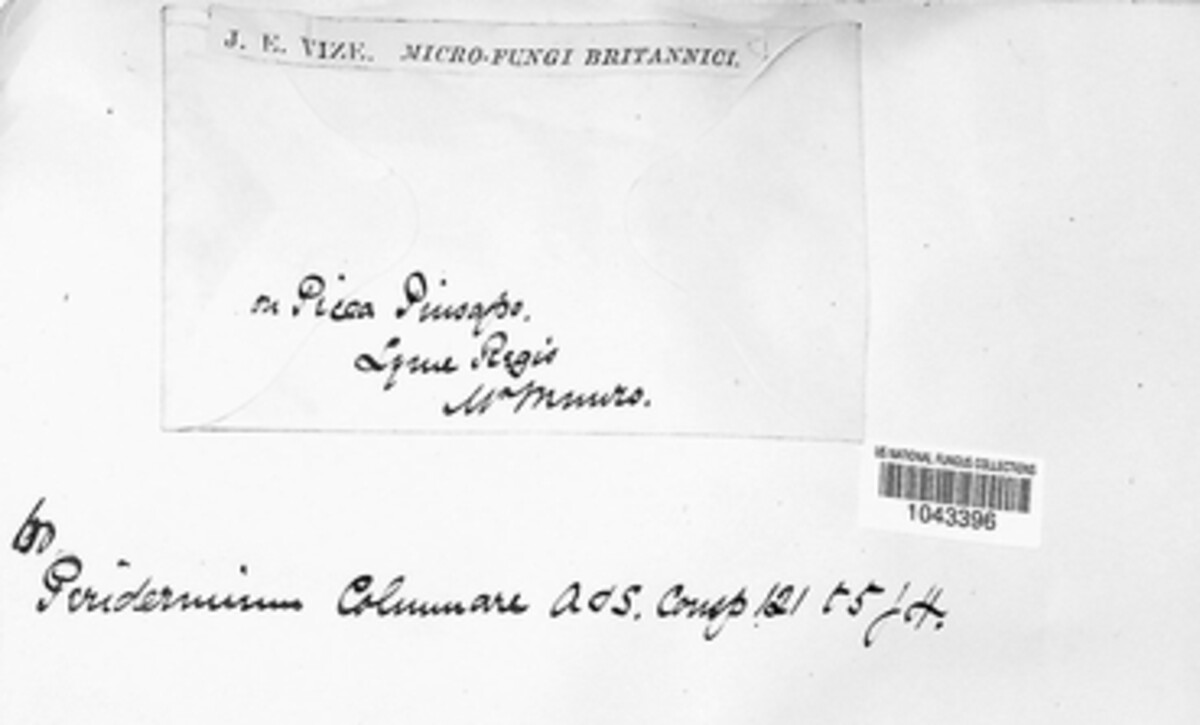 J. E. VIZE. MICRO-FUNGI BRITANNICI.
on Picea Pinsapo.
Lyme Regis
Mr Munro.
US NATIONAL FUNGUS COLLECTIONS
1043396
Peridermium Columnare A & S. Consp 121 t 5 f 4.